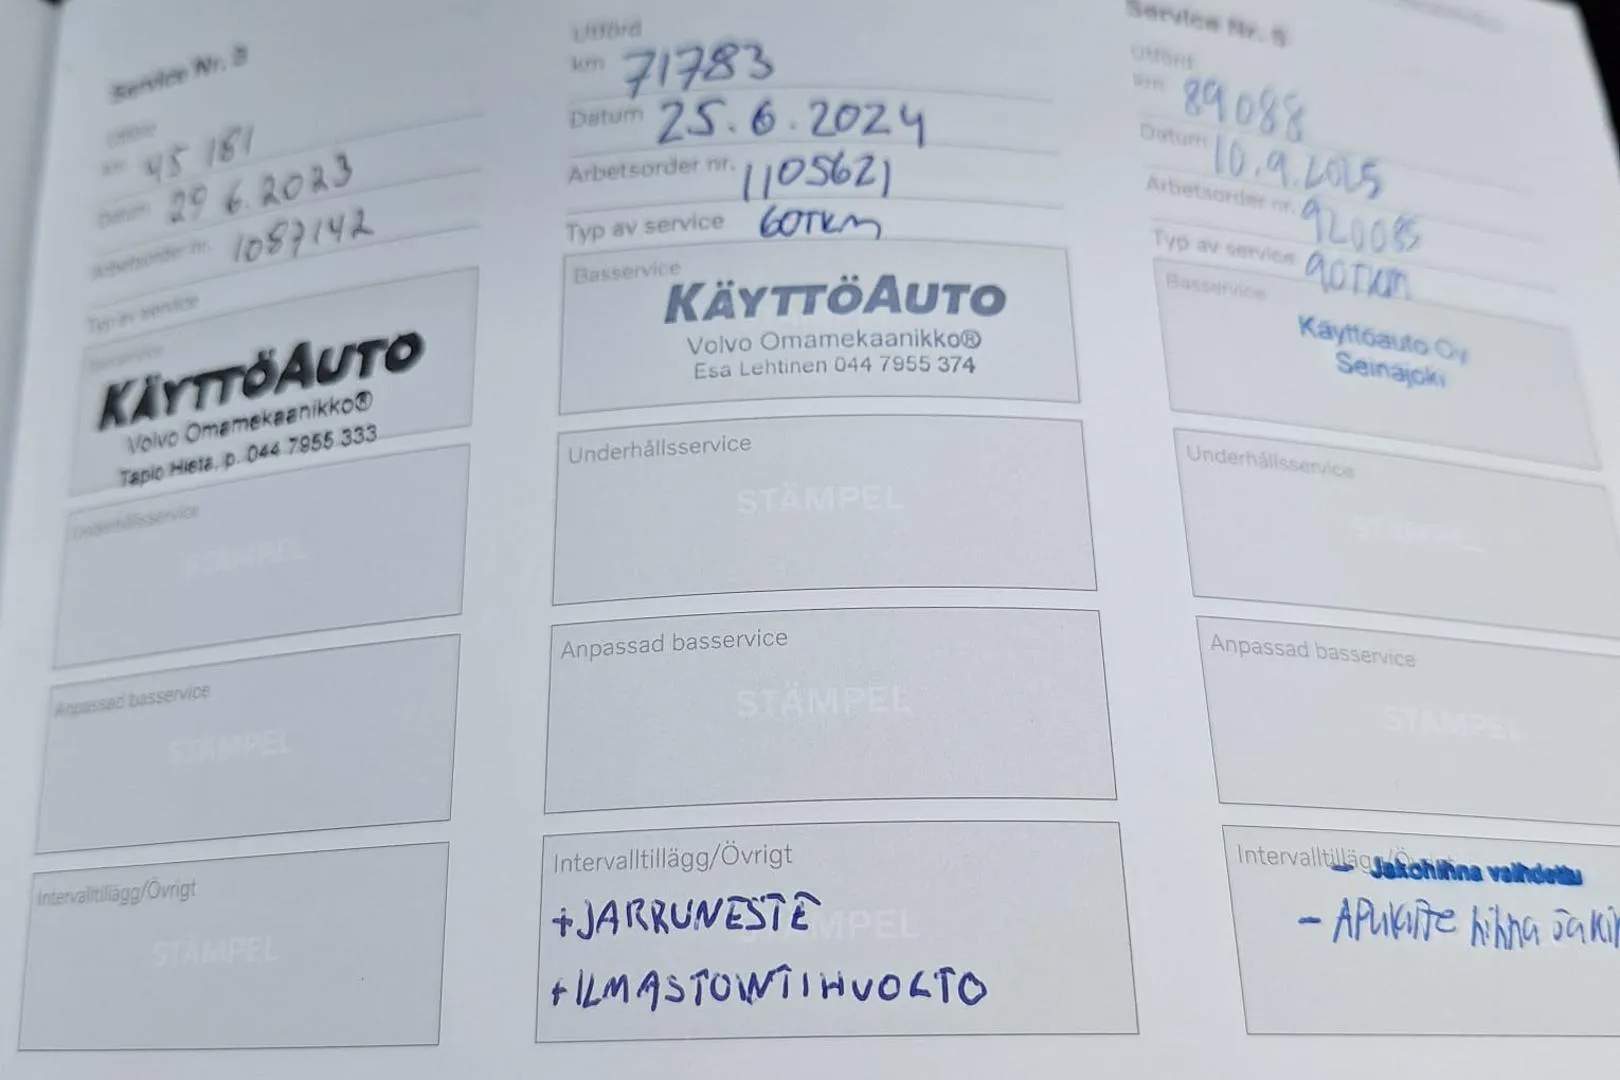 Service Nr. 3
Utförd
km 45 181
Datum 29 6.2023
Arbetsorder nr. 1087142
Typ av service
Basservice
KÄYTTÖAUTO
Volvo Omamekaanikko®
Tapio Hieta, p. 044 7955 333
Underhållsservice
STÄMPEL
Anpassad basservice
STÄMPEL
Intervalltillägg/Övrigt
STÄMPEL
Utförd
km 71783
Datum 25.6.2024
Arbetsorder nr. 1105621
Typ av service 60TKM
Basservice
KÄYTTÖAUTO
Volvo Omamekaanikko®
Esa Lehtinen 044 7955 374
Underhållsservice
STÄMPEL
Anpassad basservice
STÄMPEL
Intervalltillägg/Övrigt
+JARRUNESTE
+ILMASTOINTIHUOLTO
Service Nr. 5
Utförd
km 89088
Datum 10.9.2025
Arbetsorder nr. 920085
Typ av service 90TKM
Basservice
Käyttöauto Oy
Seinäjoki
Underhållsservice
STÄMPEL
Anpassad basservice
STÄMPEL
Intervalltillägg/Övrigt
- Jakohihna vaihdettu
- APULAITE hihna